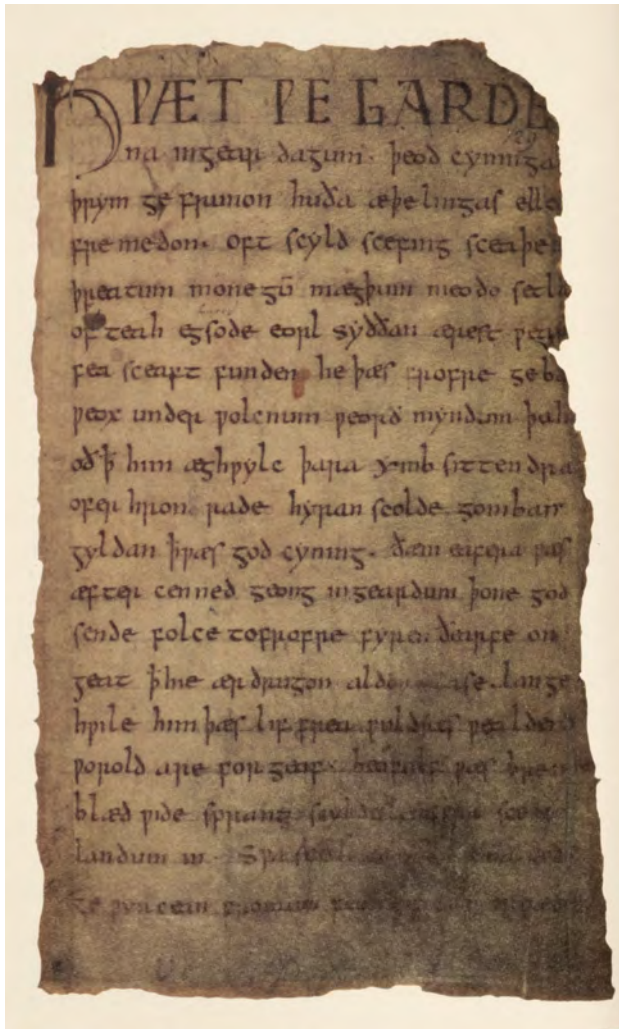 HǷÆT ǷE GARDE
na ingear dagum. þeod cyninga
þrym ge frunon huða æþelingas elle
fremedon. oft scyld scefing sceaþe
þreatum monegū mægþum meodo setla
of teah egsode eorl syððan ærest ƿear
fea sceaft funden he þæs frofre geba
ƿeox under ƿolcnum ƿeorð myndum þah
oð ꝥ him æghƿylc þara ymb sittendra
ofer hron rade hyran scolde gomban
gyldan ꝥ ƿæs god cyning. ðæm eafera ƿæs
æfter cenned geong ingeardum þone god
sende folce tofrofre fyren ðearfe on
geat ꝥ hie ær drugon aldor ase. lange
hƿile him þæs lif frea ƿuldres ƿealdend
ƿorold are for geaf. beoƿulf ƿæs breme
blæd ƿide sprang scyldes eafera scede
landum in. Sƿa
ge ƿyrcean